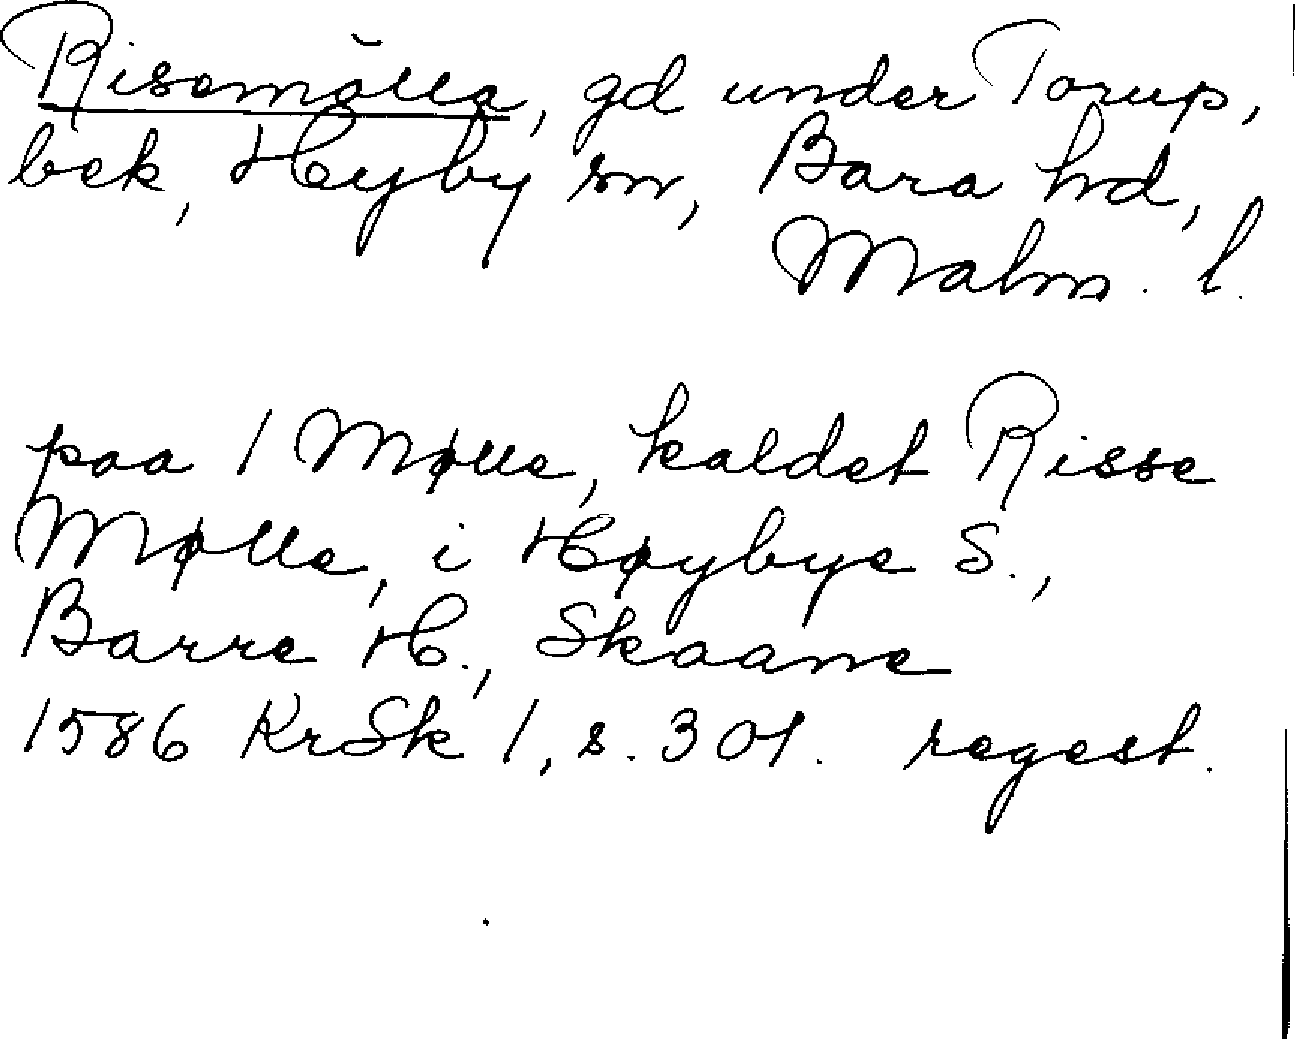 Risemölla, gd under Torup,
bek, Hyby sn, Bara hd,
Malm. l.
paa 1 Mølle, kaldet Risse
Mølle, i Høybye S.,
Barre H., Skaane
1586 KrSk 1, s. 301. regest.